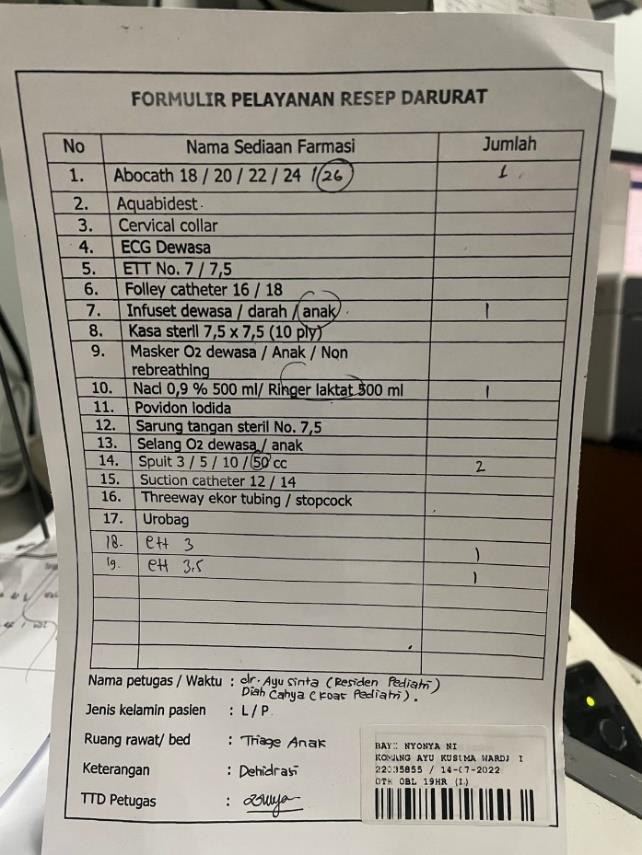 FORMULIR PELAYANAN RESEP DARURAT
No Nama Sediaan Farmasi Jumlah
1. Abocath 18 / 20 / 22 / 24 / 26 1
2. Aquabidest
3. Cervical collar
4. ECG Dewasa
5. ETT No. 7 / 7,5
6. Folley catheter 16 / 18
7. Infuset dewasa / darah / anak 1
8. Kasa steril 7,5 x 7,5 (10 ply)
9. Masker O2 dewasa / Anak / Non
rebreathing
10. Nacl 0,9 % 500 ml/ Ringer laktat 500 ml 1
11. Povidon Iodida
12. Sarung tangan steril No. 7,5
13. Selang O2 dewasa / anak
14. Spuit 3 / 5 / 10 / 50 cc 2
15. Suction catheter 12 / 14
16. Threeway ekor tubing / stopcock
17. Urobag
18. ett 3 1
19. ett 3.5 1
Nama petugas / Waktu : dr. Ayu Sinta (Residen Pediatri)
Diah Cahya (Koas Pediatri).
Jenis kelamin pasien : L/P
Ruang rawat/ bed : Triage Anak
Keterangan : Dehidrasi
TTD Petugas :
BAYI NYONYA NI
KOMANG AYU KUSUMA WARDJ I
22035855 / 14-07-2022
OTH OBL 19HR (L)